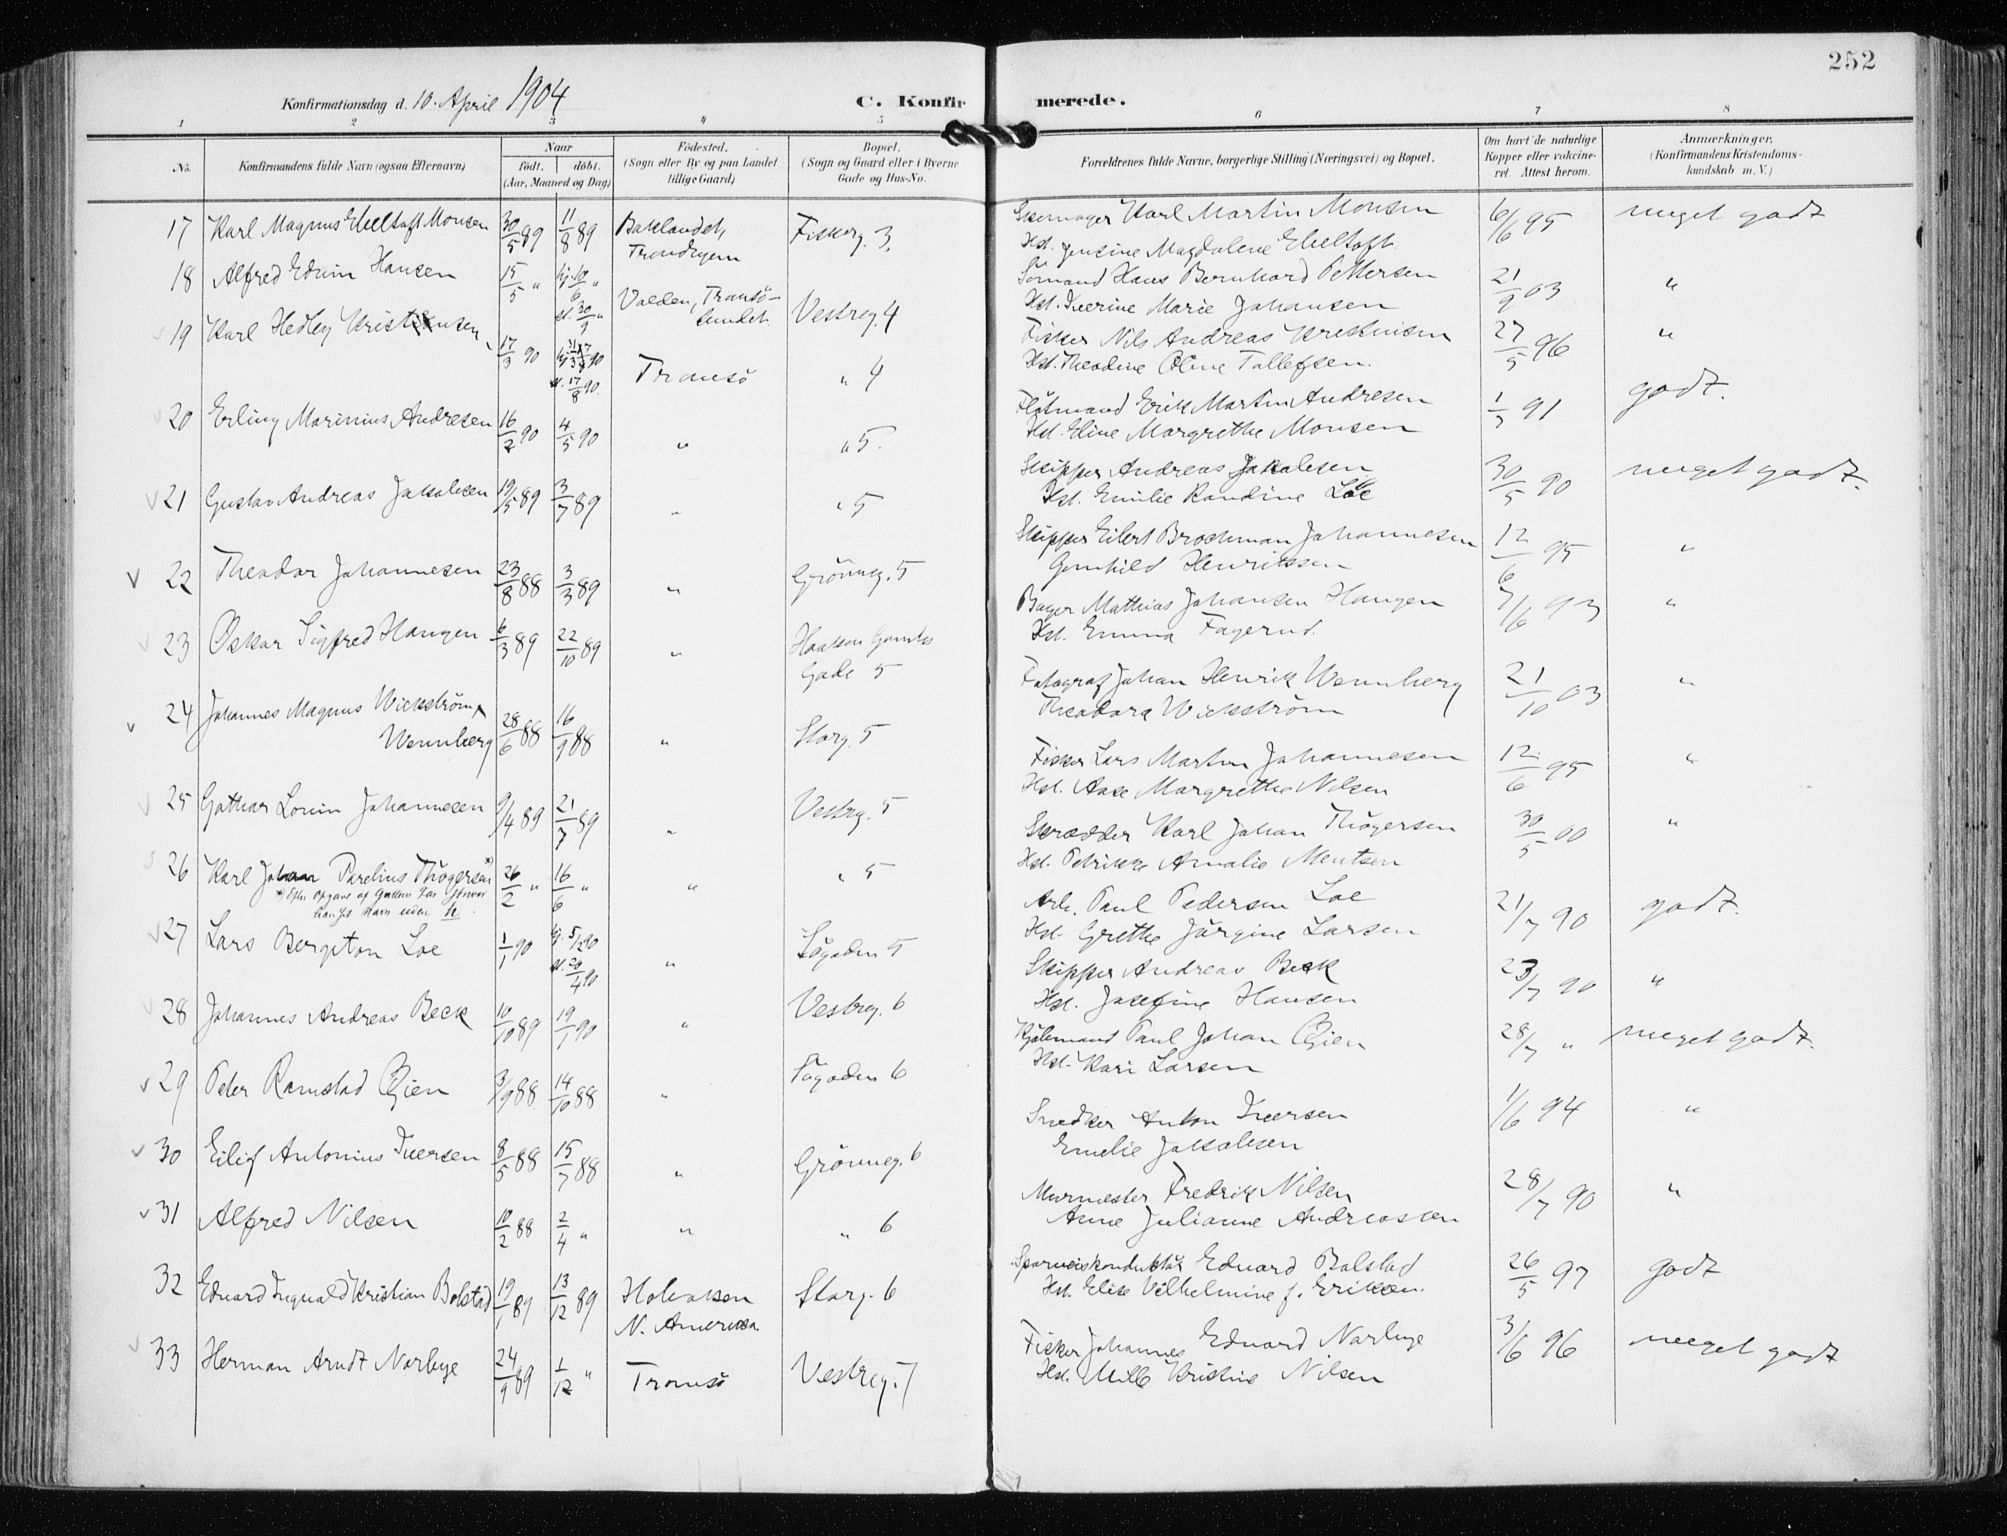 252
Konfirmationsdag d. 10. April 1904
C. Konfirmerede.
1 2 3 4 5 6 7 8
No. Konfirmandens fulde Navn (ogsaa Efternavn) Naar født. døbt. (Aar, Maaned og Dag) Fødested. (Sogn eller By og paa Landet tillige Gaard) Bopæl. (Sogn og Gaard eller i Byerne Gade og Hus-No. Forældrenes fulde Navne, borgerlige Stilling (Næringsvei) og Bopæl. Om havt de naturlige Kopper eller vakcineret. Attest herom. Anmærkninger. (Konfirmandens Kristendomskundskab m. V.)
17 Karl Magnus Ebeltoft Monsen 30/5 89 11/8 89 Baklandet, Trondhjem Fiskerg. 3. Skomager Karl Martin Monsen 6/6 95 meget godt
Hst. Jensine Magdalene Ebeltoft.
18 Alfred Edvin Hansen 15/5 " hj. 10/6 " st. 30/9 " Tromsösundet Vestreg. 4 Sömand Hans Bernhard Pettersen 21/9 03 "
Hst. Iverine Marie Johansen
19 Karl Hedley Kristensen 17/3 90 st. 17/8 90. Tromsö " 4 Fisker Nils Andreas Kristensen 27/5 96 "
Hst. Theodine Oline Tollefsen.
20 Erling Marinius Andresen 16/2 90 4/5 90 " " 5. Flötmand Erik Martin Andresen 1/7 91 godt.
Hst. Eline Margrethe Monsen
21 Gustav Andreas Jakobsen 19/5 89 3/7 89 " " 5 Skipper Andreas Jakobsen 30/5 90 meget godt.
Hst. Emilie Randine Loe
22 Theodor Johannesen 23/8 88 3/3 89 " Grönneg. 5 Skipper Eilert Brochman Johannesen 12/6 95 "
Gunhild Henrikssen
23 Oskar Sigfred Haugen 6/3 89 22/10 89 " Haakon Gamles Gade 5 Bager Mathias Johansen Haugen 7/6 93 "
Hst. Emma Fagerud.
24 Johannes Magnus Wickström Wennberg 28/6 88 16/9 88 " Storg. 5 Fotograf Johan Henrik Wennberg 21/10 03 "
Theodora Wickström
25 Gothar Lovin Johannesen 9/4 89 21/7 89 " Vestreg. 5 Fisker Lars Martin Johannesen 12/6 95 "
Hst. Aase Margrethe Nilsen
26 Karl Johan Parelius Thögersen* 26/2 " 16/6 " " " 5 Skrædder Karl Johan Thögersen 30/5 00 "
Hst. Petrikke Amalie Mentsen
27 Lars Bergiton Loe 1/1 90 hj. 5/2 90 st. 20/4 90 " Sögaden 5 Arb. Paul Pedersen Loe 21/7 90 godt.
Hst. Grethe Jörgine Larsen
28 Johannes Andreas Beck 10/10 89 19/1 90 " Vestreg. 6 Skipper Andreas Beck 23/7 90 "
Hst. Josefine Hansen
29 Peter Ramstad Öien 3/9 88 14/10 88 " Sögaden 6 Kjölemand Paul Johan Öien 28/7 " meget godt.
Hst. Kari Larsen
30 Eilif Antonius Iversen 8/5 88 15/7 88 " Grönneg. 6 Snedker Anton Iversen 1/6 94 "
Emelie Jakobsen
31 Alfred Nilsen 10/2 88 2/4 " " " 6 Murmester Fredrik Nilsen 28/7 90 "
Anne Julianne Andreassen
32 Edvard Ingvald Kristian Bolstad 19/1 89 13/12 89 Hoboken N. Amerika Storg. 6 Sporveiskonduktör Edvard Bolstad 26/5 97 godt
Hst. Elise Vilhelmine f. Eriksen.
33 Herman Arndt Norbye 24/9 89 1/12 " Tromsö Vestreg. 7 Fisker Johannes Edvard Norbye 3/6 96 meget godt
Hst. Milla Kristine Nilsen